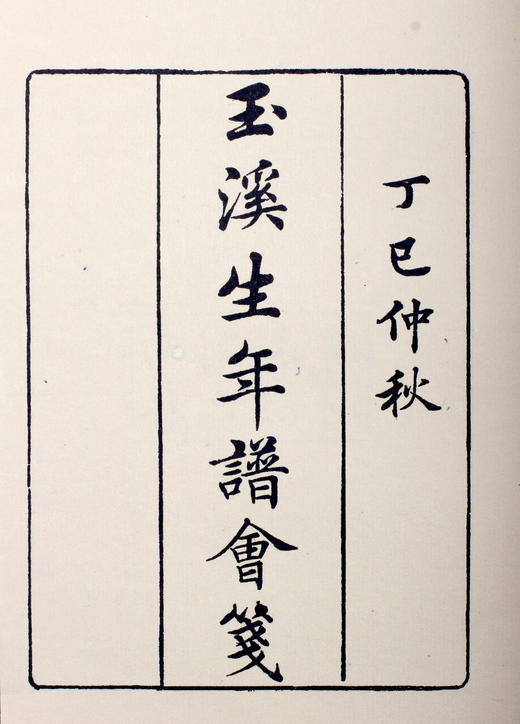 丁巳仲秋
玉溪生年譜會箋